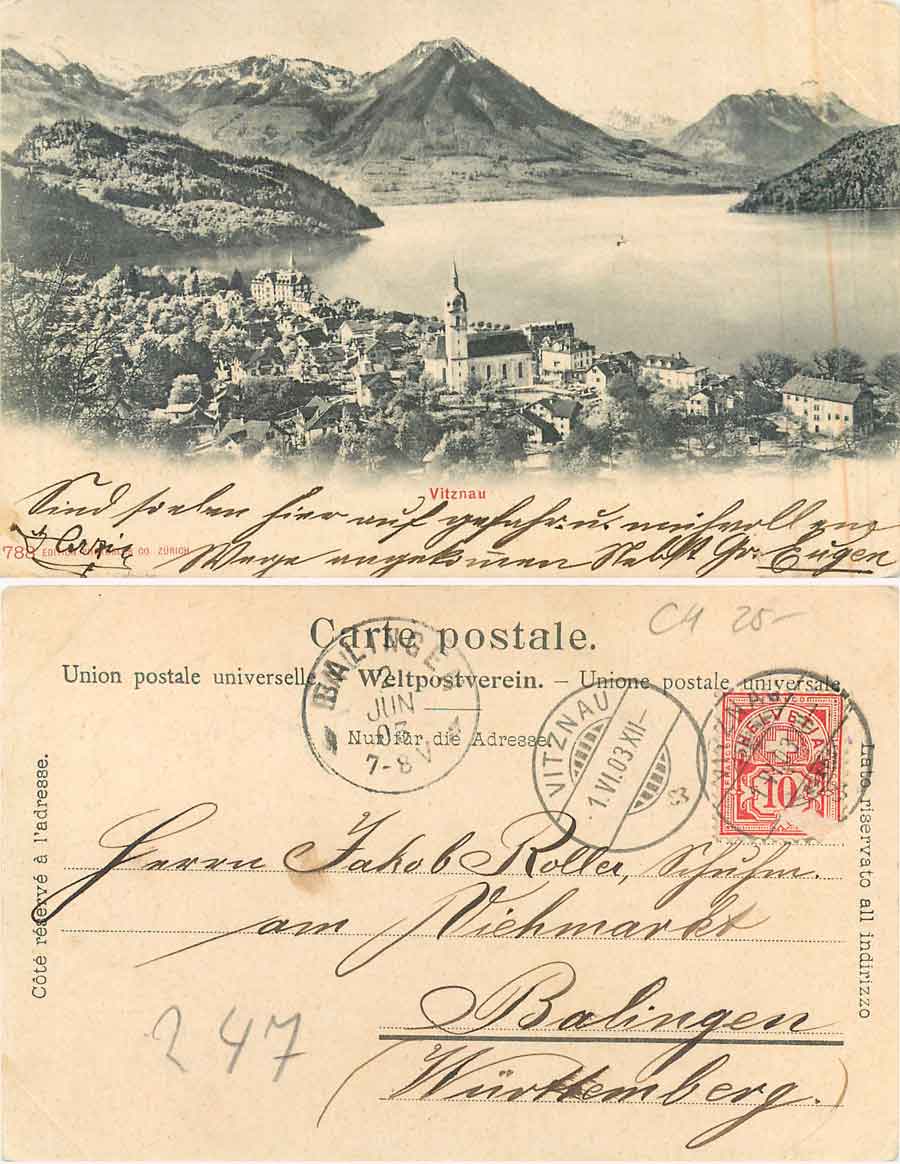 Vitznau
Sind soeben hier auf gefahr. u. mühvollem
Wege angekommen Nebst Gr. Eugen
788 EDITION CO. ZÜRICH
CH 25-
Carte postale.
Union postale universelle. – Weltpostverein. – Unione postale universale.
Nur für die Adresse.
Côté réservé à l'adresse.
Lato riservato all indirizzo
BALINGEN
2
JUN
03
7-8 V
VITZNAU
1.VI.03.XII-
HELVETIA
10
Herrn Jakob Roller, Schuhm.
am Viehmarkt
Balingen
(Württemberg.)
247